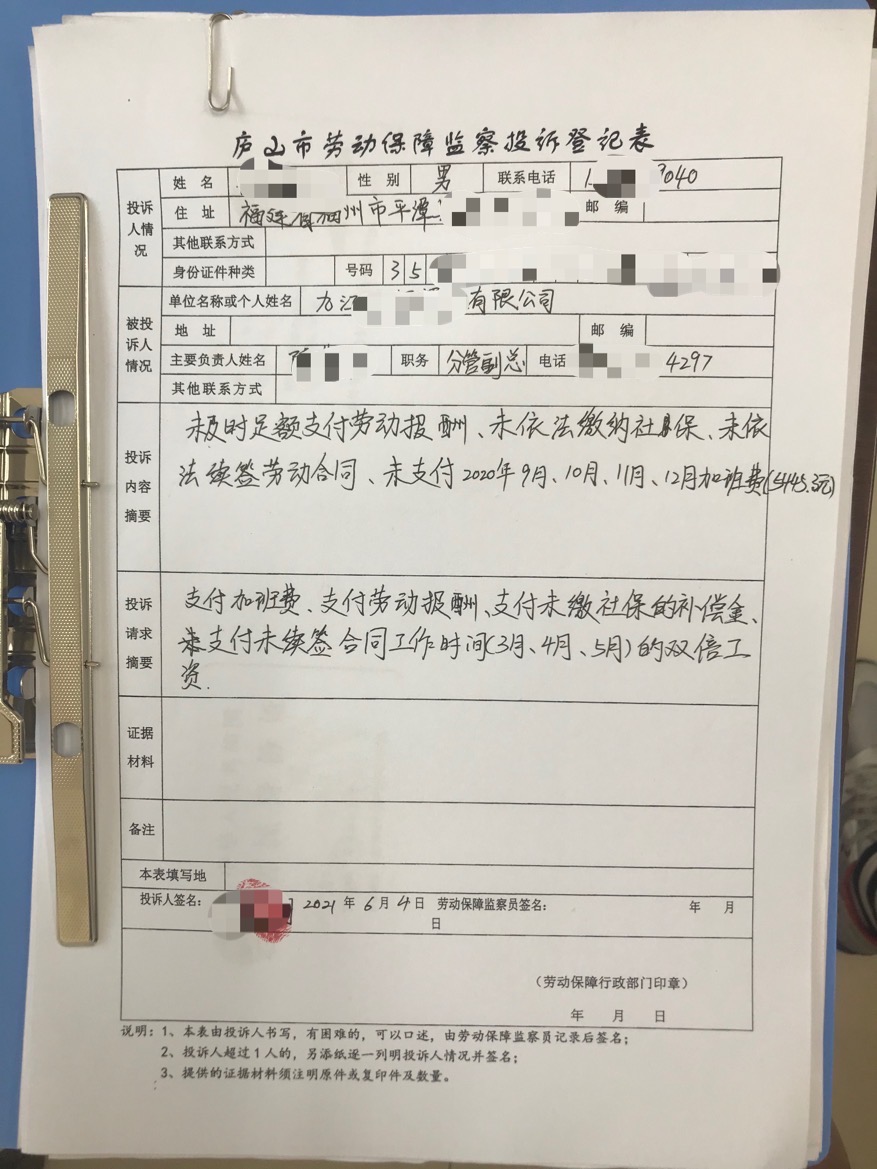 庐山市劳动保障监察投诉登记表
投诉人情况
姓 名 性 别 男 联系电话 1 3040
住 址 州市平潭 邮 编
其他联系方式
身份证件种类 号码 35
被投诉人情况
单位名称或个人姓名 九江 有限公司
地 址 邮 编
主要负责人姓名 职务 分管副总 电话 4297
其他联系方式
投诉内容摘要
未及时足额支付劳动报酬、未依法缴纳社保、未依
法续签劳动合同、未支付2020年9月、10月、11月、12月加班费(5445.3元)
投诉请求摘要
支付加班费、支付劳动报酬、支付未缴社保的补偿金、
支付未续签合同工作时间(3月、4月、5月)的双倍工
资.
证据材料
备注
本表填写地
投诉人签名: 2021年6月4日 劳动保障监察员签名: 年 月
日
(劳动保障行政部门印章)
年 月 日
说明:1、本表由投诉人书写,有困难的,可以口述,由劳动保障监察员记录后签名;
2、投诉人超过1人的,另添纸逐一列明投诉人情况并签名;
3、提供的证据材料须注明原件或复印件及数量。